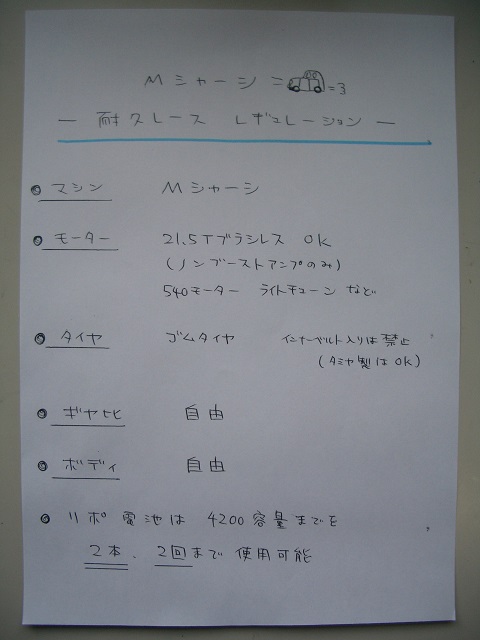 Mシャーシ =3
― 耐久レース レギュレーション ―
マシン Mシャーシ
モーター 21.5Tブラシレス OK
(ノンブーストアンプのみ)
540モーター ライトチューン など
タイヤ ゴムタイヤ インナーベルト入りは禁止
(タミヤ製はOK)
ギヤ比 自由
ボディ 自由
リポ電池は 4200容量までを
2本、2回まで使用可能